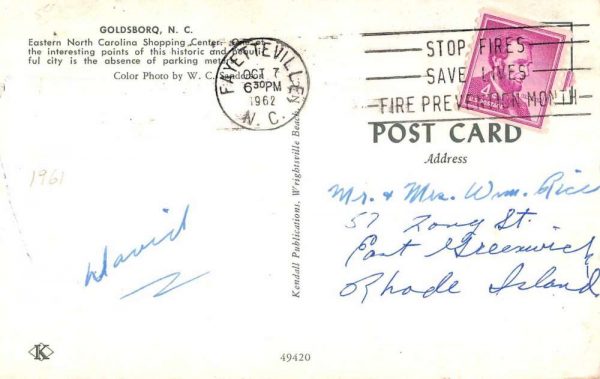 GOLDSBORO, N. C.
Eastern North Carolina Shopping Center. One of
the interesting points of this historic and beauti-
ful city is the absence of parking meters.
Color Photo by W. C. Sandoula
FAYETTEVILLE,
OCT 7
6 30PM
1962
N. C.
STOP FIRES
SAVE LIVES
FIRE PREVENTION MONTH
POST CARD
Address
1961
David
Kendall Publications, Wrightsville Beach, N.
Mr. & Mrs. Wm. Rice
57 Long St.
East Greenwich
Rhode Island
K
49420